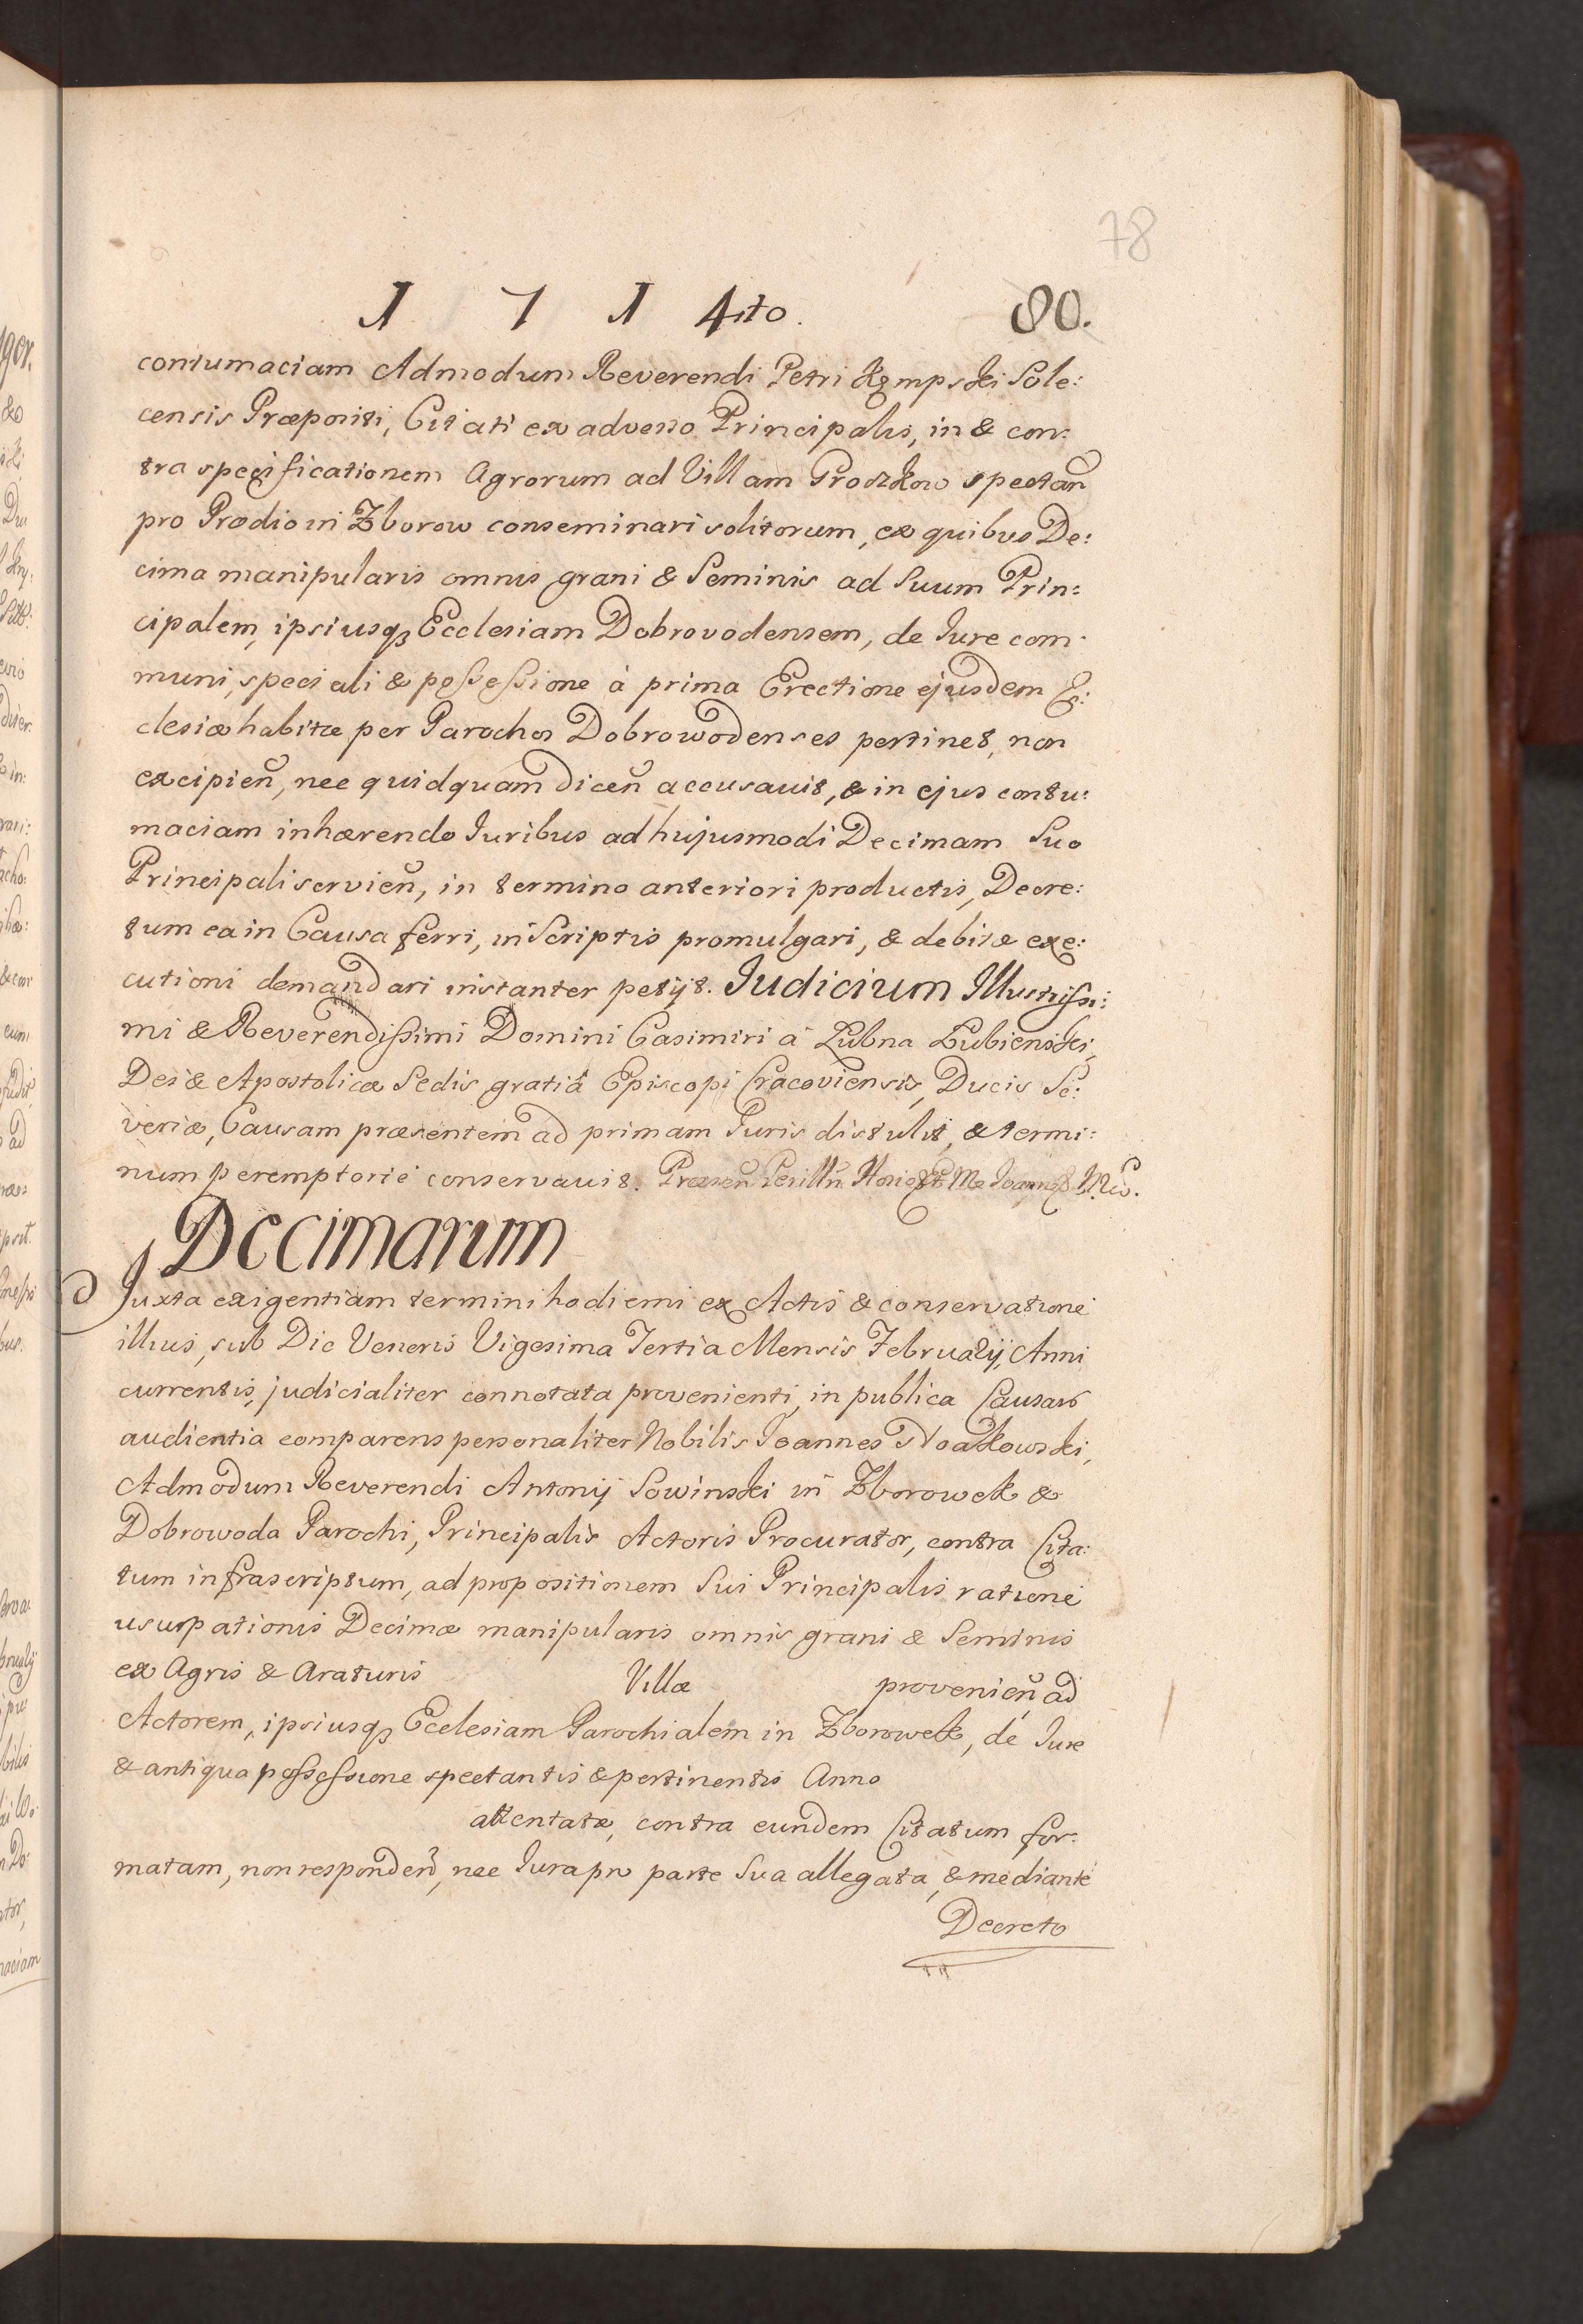 78
1 7 1 4ito. 80.
contumaciam Admodum Reverendi Petri Kempski Sole:
censis Præpositi, Citati ex adverso Principalis, in & con:
tra specificationem Agrorum ad Villam Groszkow spectan̄
pro Prædio in Zborow conseminari solitorum, ex quibus De:
cima manipularis omnis grani & Seminis ad Suum Prin:
cipalem, ipsiusq; Ecclesiam Dobrovodensem, de Iure com:
muni, speciali & possessione à prima Erectione ejusdem Ec:
clesiæ habitæ per Parochos Dobrowodenses pertinet, non
excipien̄, nec quidquam dicen̄ accusavit, & in ejus contu:
maciam inhærendo Iuribus ad hujusmodi Decimam Suo
Principali servien̄, in termino anteriori productis, Decre:
tum ea in Causa ferri, in Scriptis promulgari, & debitæ exe:
cutioni demandari instanter petijt. Judicium Illustrissi:
mi & Reverendissimi Domini Casimiri à Lubna Lubienski,
Dei & Apostolicæ Sedis gratiâ Episcopi Cracoviensis, Ducis Se:
veriæ, Causam præsentem ad primam Iuris distulit, & termi:
num peremptorie conservavit. Præsen̄
Decimarum
Juxta exigentiam termini hodierni ex Actis & conservatione
illius, sub Die Veneris Vigesima Tertia Mensis Februarij, Anni
currentis, judicialiter connotata provenienti, in publica Causar̄
audientia comparens personaliter Nobilis Ioannes Noakowski,
Admodum Reverendi Antonij Sowinski in Zborowek &
Dobrowoda Parochi, Principalis Actoris Procurator, contra Cita:
tum infrascriptum, ad propositionem Sui Principalis ratione
usurpationis Decimæ manipularis omnis grani & Seminis
ex Agris & Araturis Villæ provenien̄ ad
Actorem, ipsiusq; Ecclesiam Parochialem in Zborowek, de Iure
& antiqua possessione spectantis & pertinentis Anno
attentatæ, contra eundem Citatum for:
matam, non responden̄, nec Iura pro parte Sua allegata, & mediante
Decreto